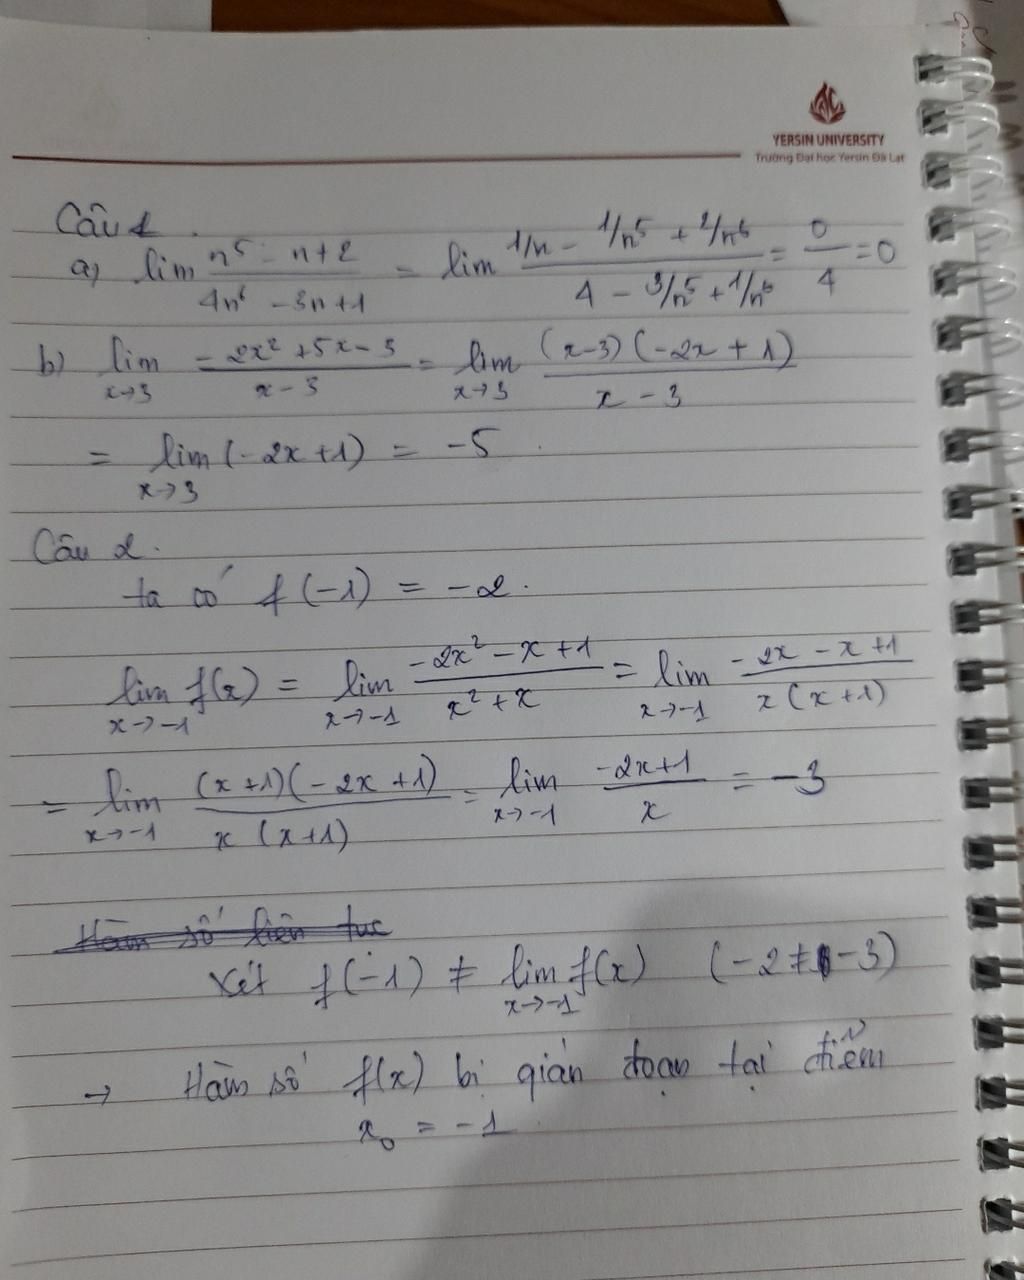 YERSIN UNIVERSITY
Trường Đại học Yersin Đà Lạt
Câu 1.
a) lim (n⁵ - n + 2)/(4n⁶ - 3n + 1) = lim (1/n - 1/n⁵ + 2/n⁶)/(4 - 3/n⁵ + 1/n⁶) = 0/4 = 0
b) lim x→3 (-2x² + 5x - 3)/(x - 3) = lim x→3 (x-3)(-2x + 1)/(x - 3)
= lim x→3 (-2x + 1) = -5.
Câu 2.
ta có f(-1) = -2.
lim x→-1 f(x) = lim x→-1 (-2x² - x + 1)/(x² + x) = lim x→-1 (-2x - x + 1)/(x(x+1))
= lim x→-1 (x+1)(-2x + 1)/(x(x+1)) = lim x→-1 (-2x+1)/x = -3
Hàm số liên tục
Xét f(-1) ≠ lim x→-1 f(x) (-2 ≠ -3)
→ Hàm số f(x) bị gián đoạn tại điểm
x₀ = -1